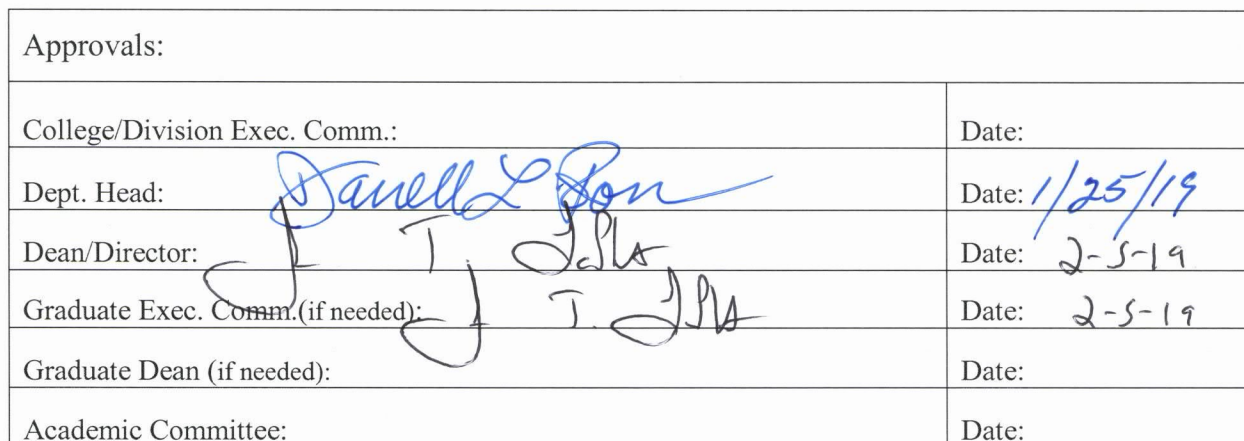 Approvals:
College/Division Exec. Comm.: Date:
Dept. Head: Date: 1/25/19
Dean/Director: J T. Date: 2-5-19
Graduate Exec. Comm.(if needed): J T. Date: 2-5-19
Graduate Dean (if needed): Date:
Academic Committee: Date: